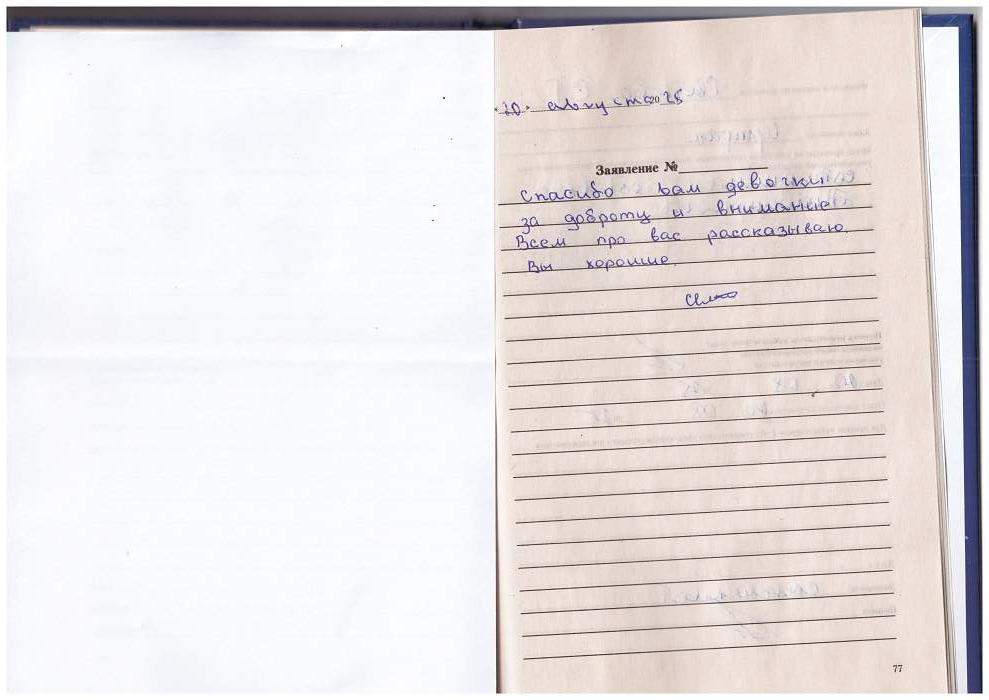 «20» августа 2025
Заявление №
Спасибо вам девочки
за доброту и внимание
Всем про вас рассказываю
Вы хорошие.
77